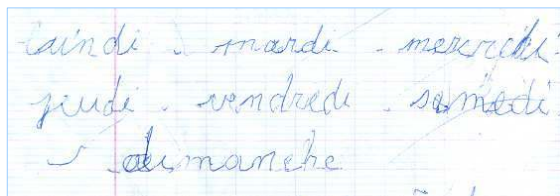 laindi . mardi . mercredi
jeudi . vendredi . samedi
dimanche